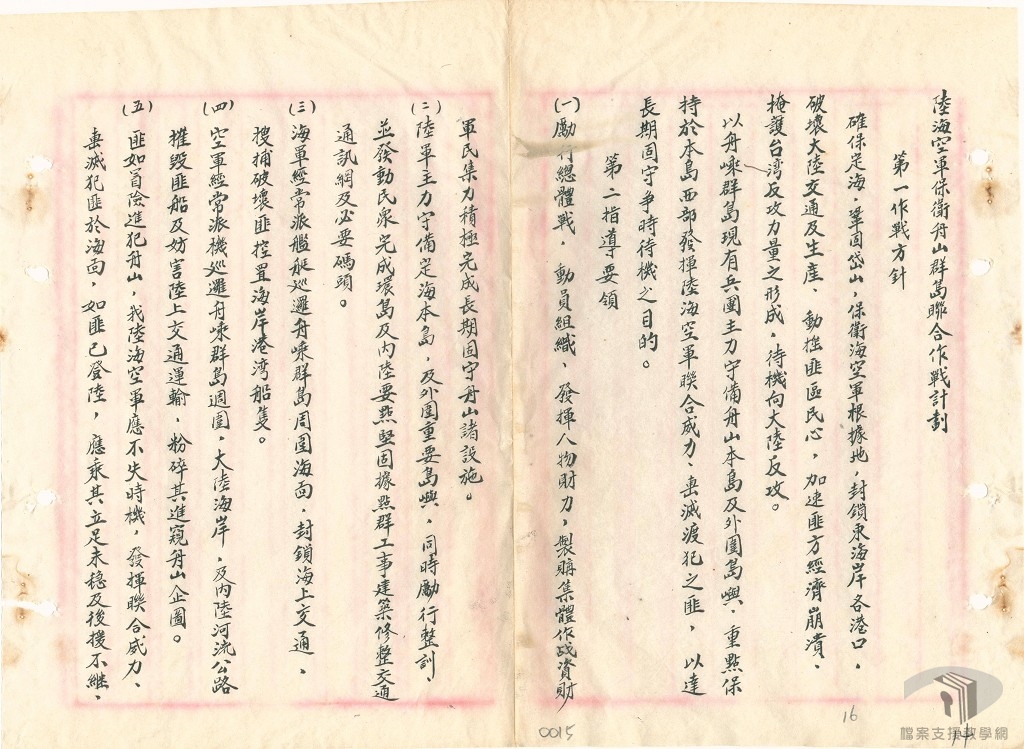 陸海空軍保衛舟山群島聯合作戰計劃
第一作戰方針
確保定海，鞏固岱山，保衛海空軍根據地，封鎖東海岸各港口，
破壞大陸交通及生產、動搖匪區民心，加速匪方經濟崩潰、
掩護台湾反攻力量之形成，待機向大陸反攻。
以舟嵊群島現有兵團主力守備舟山本島及外圍島嶼，重點保
持於本島西部發揮陸海空軍聯合威力、殲滅渡犯之匪，以達
長期固守爭時待機之目的。
第二指導要領
(一)勵行總體戰，動員組織、發揮人物財力，製購集體作战資財
軍民集力積極完成長期固守舟山諸設施。
(二)陸軍主力守備定海本島，及外圍重要島嶼，同時勵行整訓、
並發動民眾完成環島及內陸要點堅固據點群工事建築修整交通
通訊網及必要碼頭。
(三)海軍經常派艦艇巡邏舟嵊群島周圍海面，封鎖海上交通，
搜捕破壞匪控置海岸港湾船隻。
(四)空軍經常派機巡邏舟嵊群島週圍，大陸海岸，及內陸河流公路
摧毀匪船及妨害陸上交通運輸，粉碎其進窺舟山企圖。
(五)匪如冒險進犯舟山，我陸海空軍應不失時機，發揮聯合威力、
殲滅犯匪於海面，如匪已登陸，應乘其立足未穩及後援不繼、
0015
16
檔案支援教學網